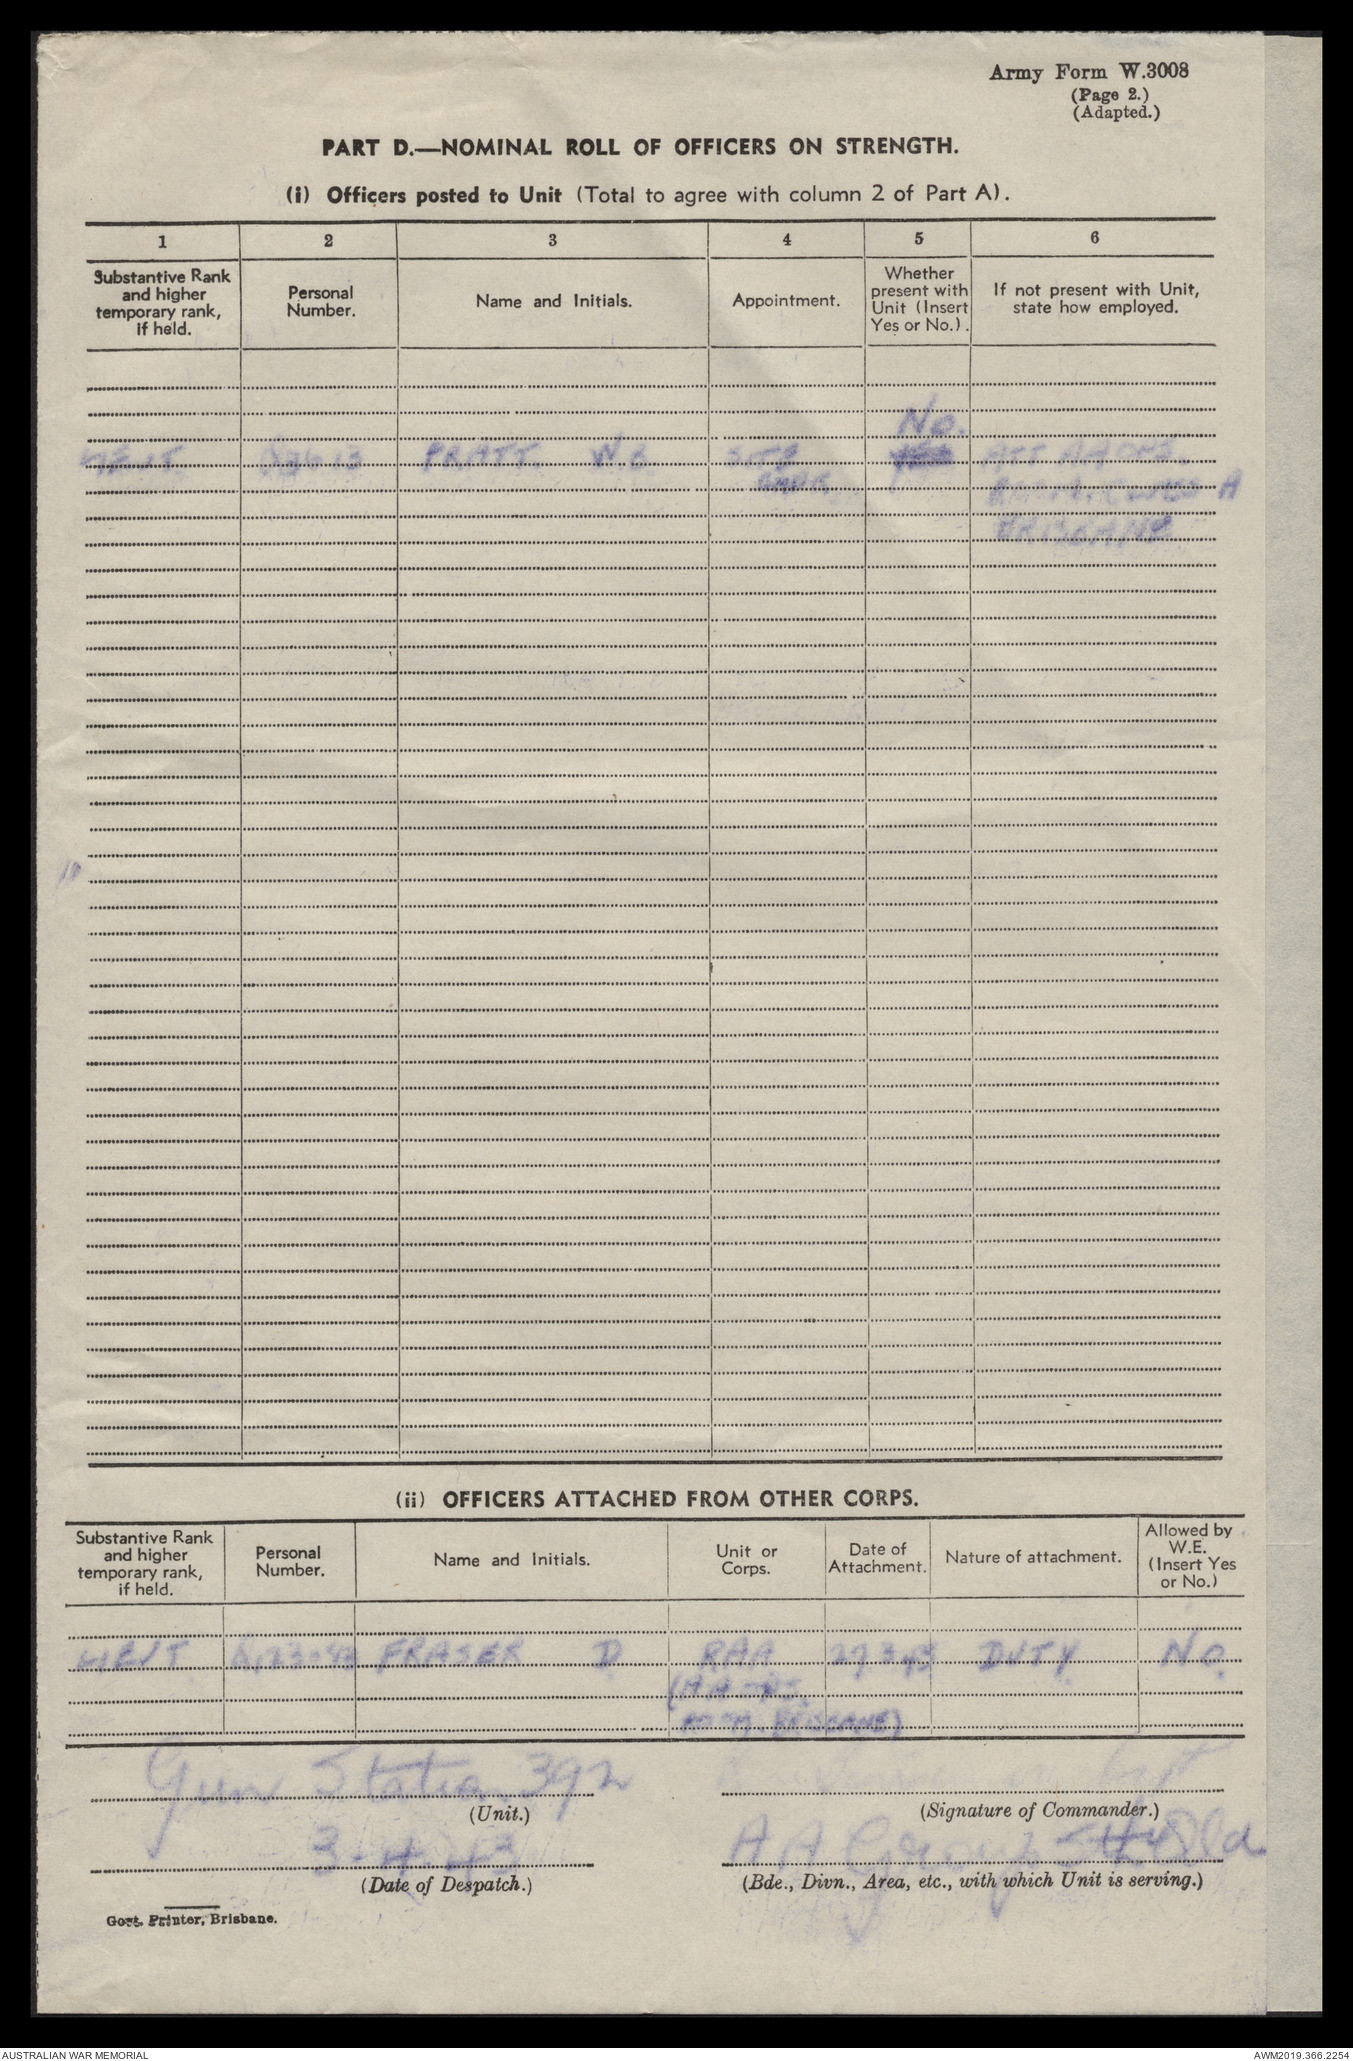 Army Form W.3008
(Page 2.)
(Adapted.)
PART D.—NOMINAL ROLL OF OFFICERS ON STRENGTH.
(i) Officers posted to Unit (Total to agree with column 2 of Part A).
1 2 3 4 5 6
Substantive Rank and higher temporary rank, if held. Personal Number. Name and Initials. Appointment. Whether present with Unit (Insert Yes or No.). If not present with Unit, state how employed.
No.
LIEUT. PRATT. SITE ATT
A
BRISBANE
(ii) OFFICERS ATTACHED FROM OTHER CORPS.
Substantive Rank and higher temporary rank, if held. Personal Number. Name and Initials. Unit or Corps. Date of Attachment. Nature of attachment. Allowed by W.E. (Insert Yes or No.)
LIEUT FRASER D RAA 27.3.43 DUTY. No.
(AA
BRISBANE)
Gun Station 392
(Unit.) (Signature of Commander.)
3-4-43 AA Group
(Date of Despatch.) (Bde., Divn., Area, etc., with which Unit is serving.)
Govt. Printer, Brisbane.
AUSTRALIAN WAR MEMORIAL AWM2019.366.2254